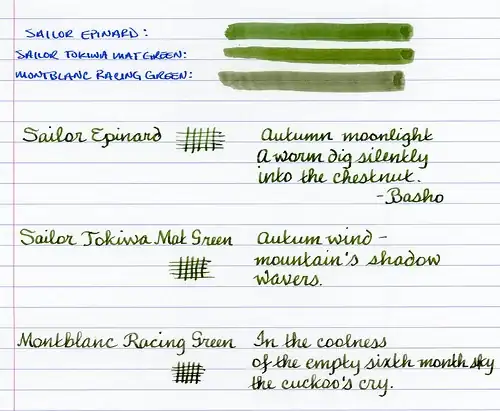 SAILOR EPINARD:
SAILOR TOKIWA MAT GREEN:
MONTBLANC RACING GREEN:
Sailor Epinard
Autumn moonlight
A worm dig silently
into the chestnut.
-Basho
Sailor Tokiwa Mat Green
Autum wind -
mountain's shadow
wavers.
Montblanc Racing Green
In the coolness
of the empty sixth month sky
the cuckoo's cry.